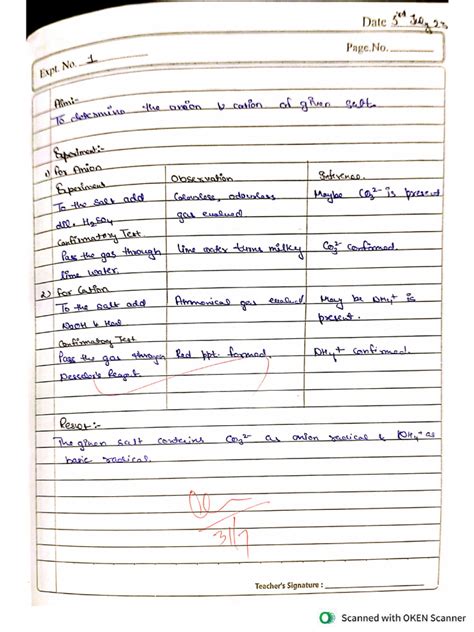 Date 3rd July 23
Page.No.
Expt. No. 1
Aim:-
To determine the anion & cation of given salt.
Experiment:-
1) For Anion
Experiment Observation Inference.
To the salt add Colourless, odourless Maybe CO3²⁻ is present
dil. H2SO4 gas evolved
Confirmatory Test
Pass the gas through lime water turns milky CO3²⁻ confirmed.
lime water.
2) For Cation
To the salt add Ammonical gas evolved May be NH4⁺ is
NaOH & Heat present.
Confirmatory Test
Pass the gas through Red ppt. formed. NH4⁺ confirmed.
Reagent
Result:-
The given salt contains CO3²⁻ as anion radical & NH4⁺ as
basic radical.
3/7
Teacher's Signature :
Scanned with OKEN Scanner